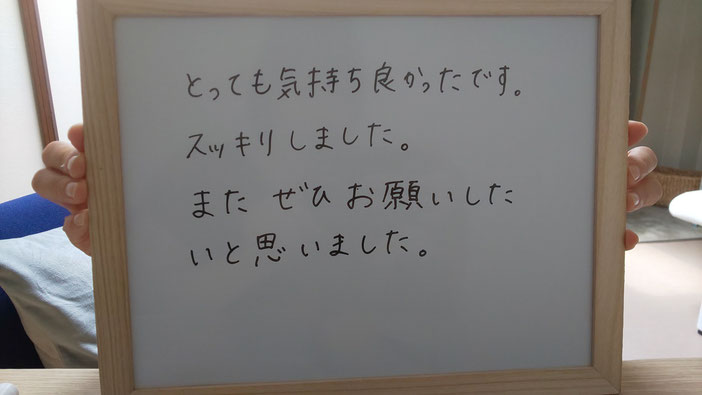 とっても気持ち良かったです。
スッキリしました。
また ぜひ お願いした
いと思いました。